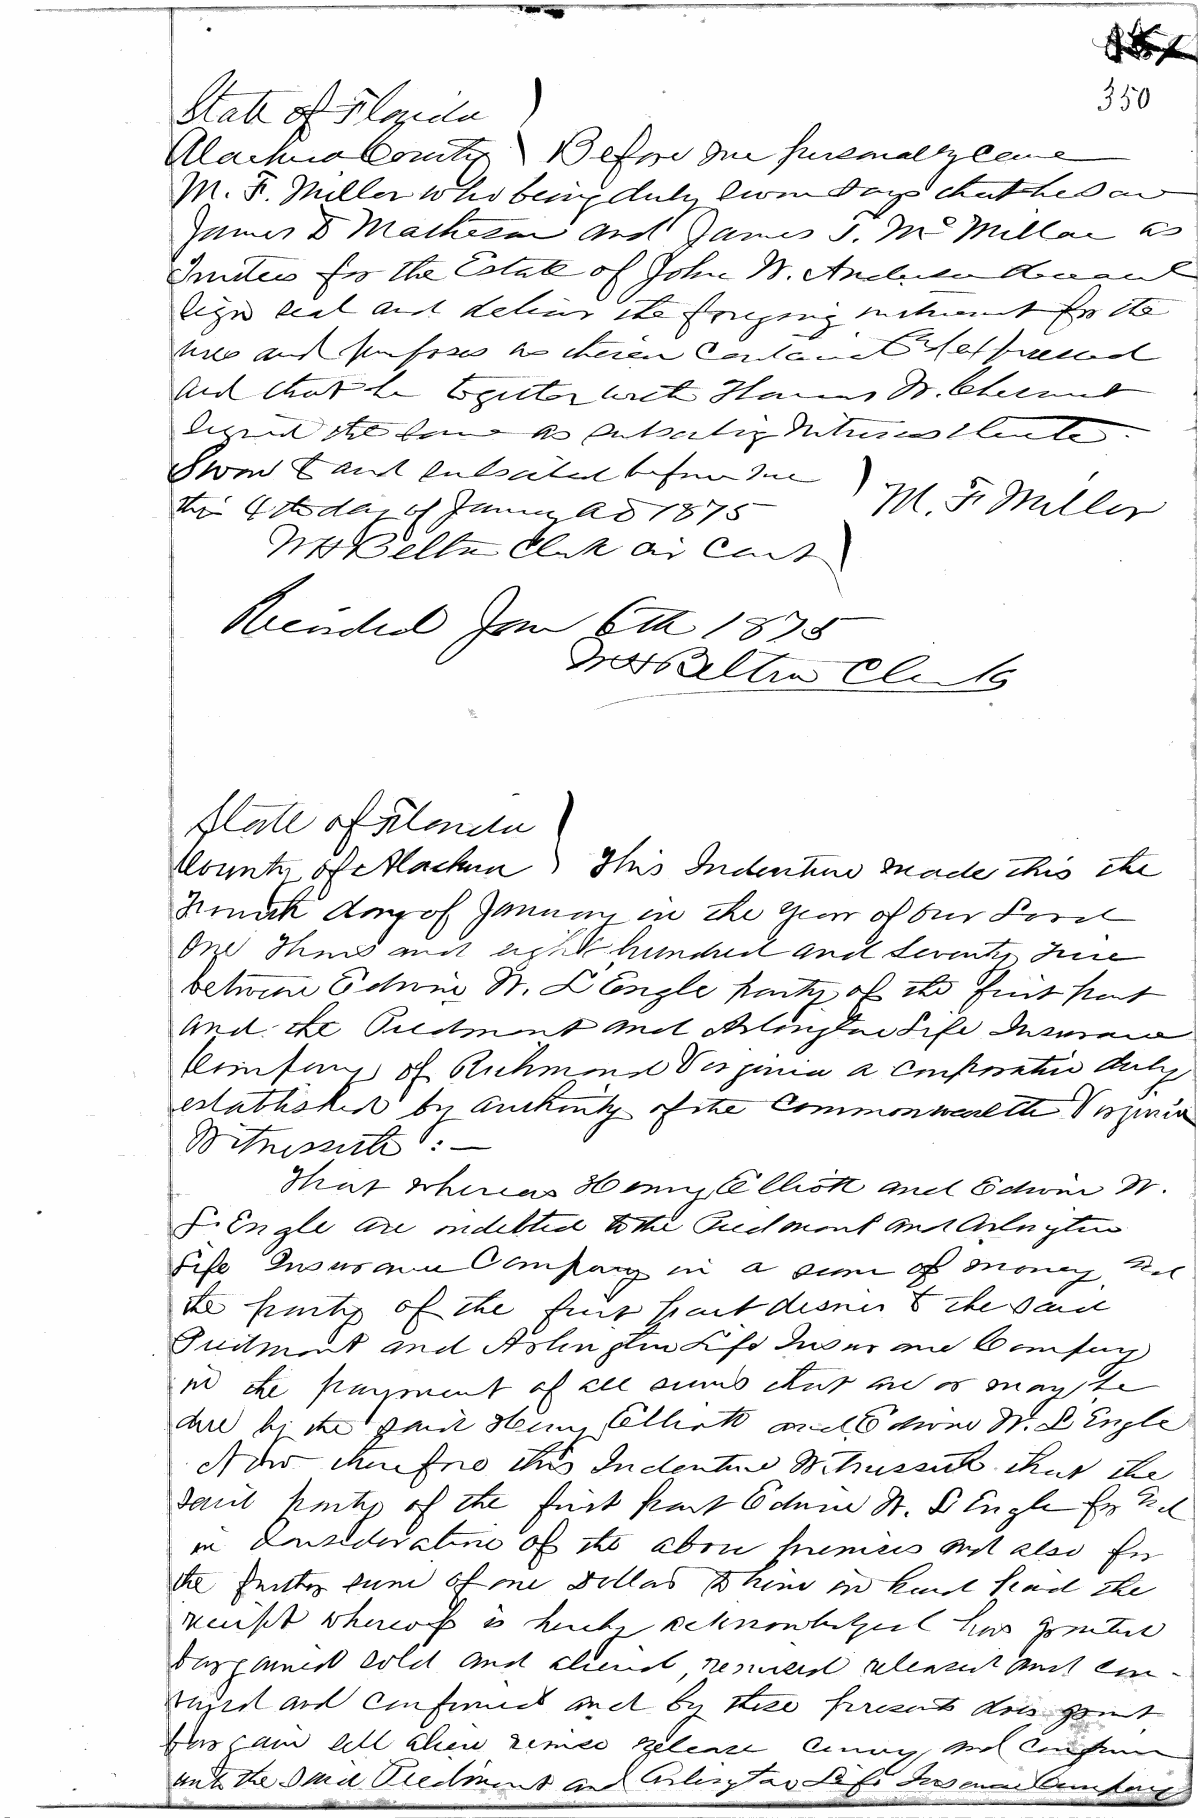 350
State of Florida
Alachua County Before me personally came
M. F. Miller who being duly sworn says that he saw
James D Matheson and James T. Mc Millan as
Trustees for the Estate of John W. Anderson deceased
sign seal and deliver the foregoing instrument for the
uses and purposes as therein contained & expressed
and that he together with Thomas W. Chesnut
signed the same as subscribing witnesses thereto.
Sworn to and subscribed before me
this 4th day of January AD 1875 M. F. Miller
W H Belton Clerk Cir Court
Recorded Jan 6th 1875
W H Belton Clerk
State of Florida
County of Alachua This Indenture made this the
Fourth day of January in the year of our Lord
One Thousand eight hundred and seventy five
between Edwin W. L'Engle party of the first part
and the Piedmont and Arlington Life Insurance
Company of Richmond Virginia a corporation duly
established by authority of the Commonwealth Virginia
Witnesseth : —
That whereas Henry Elliott and Edwin W.
L'Engle are indebted to the Piedmont and Arlington
Life Insurance Company in a sum of money and
the party of the first part desires to the said
Piedmont and Arlington Life Insurance Company
in the payment of all sums that are or may be
due by the said Henry Elliott and Edwin W. L'Engle
Now therefore this Indenture Witnesseth that the
said party of the first part Edwin W. L'Engle for and
in Consideration of the above premises and also for
the further sum of one Dollar to him in hand paid the
receipt whereof is hereby acknowledged has granted
bargained sold and aliened, remised released and con-
veyed and confirmed and by these presents does grant
bargain sell alien remise release convey and confirm
unto the said Piedmont and Arlington Life Insurance Company